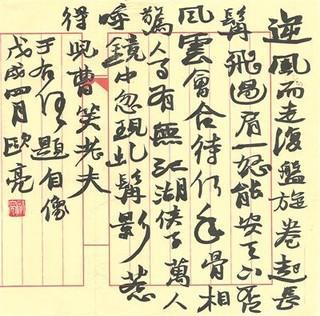 逆風而走復盤旋卷起長
髯飛過肩一怒能安天下否
風雲會合待何年骨相
驚人事有無江湖俠子萬人
呼鏡中忽現虬髯影惹
得兒曹笑老夫
于右任題自像
戊戌四月歐亮